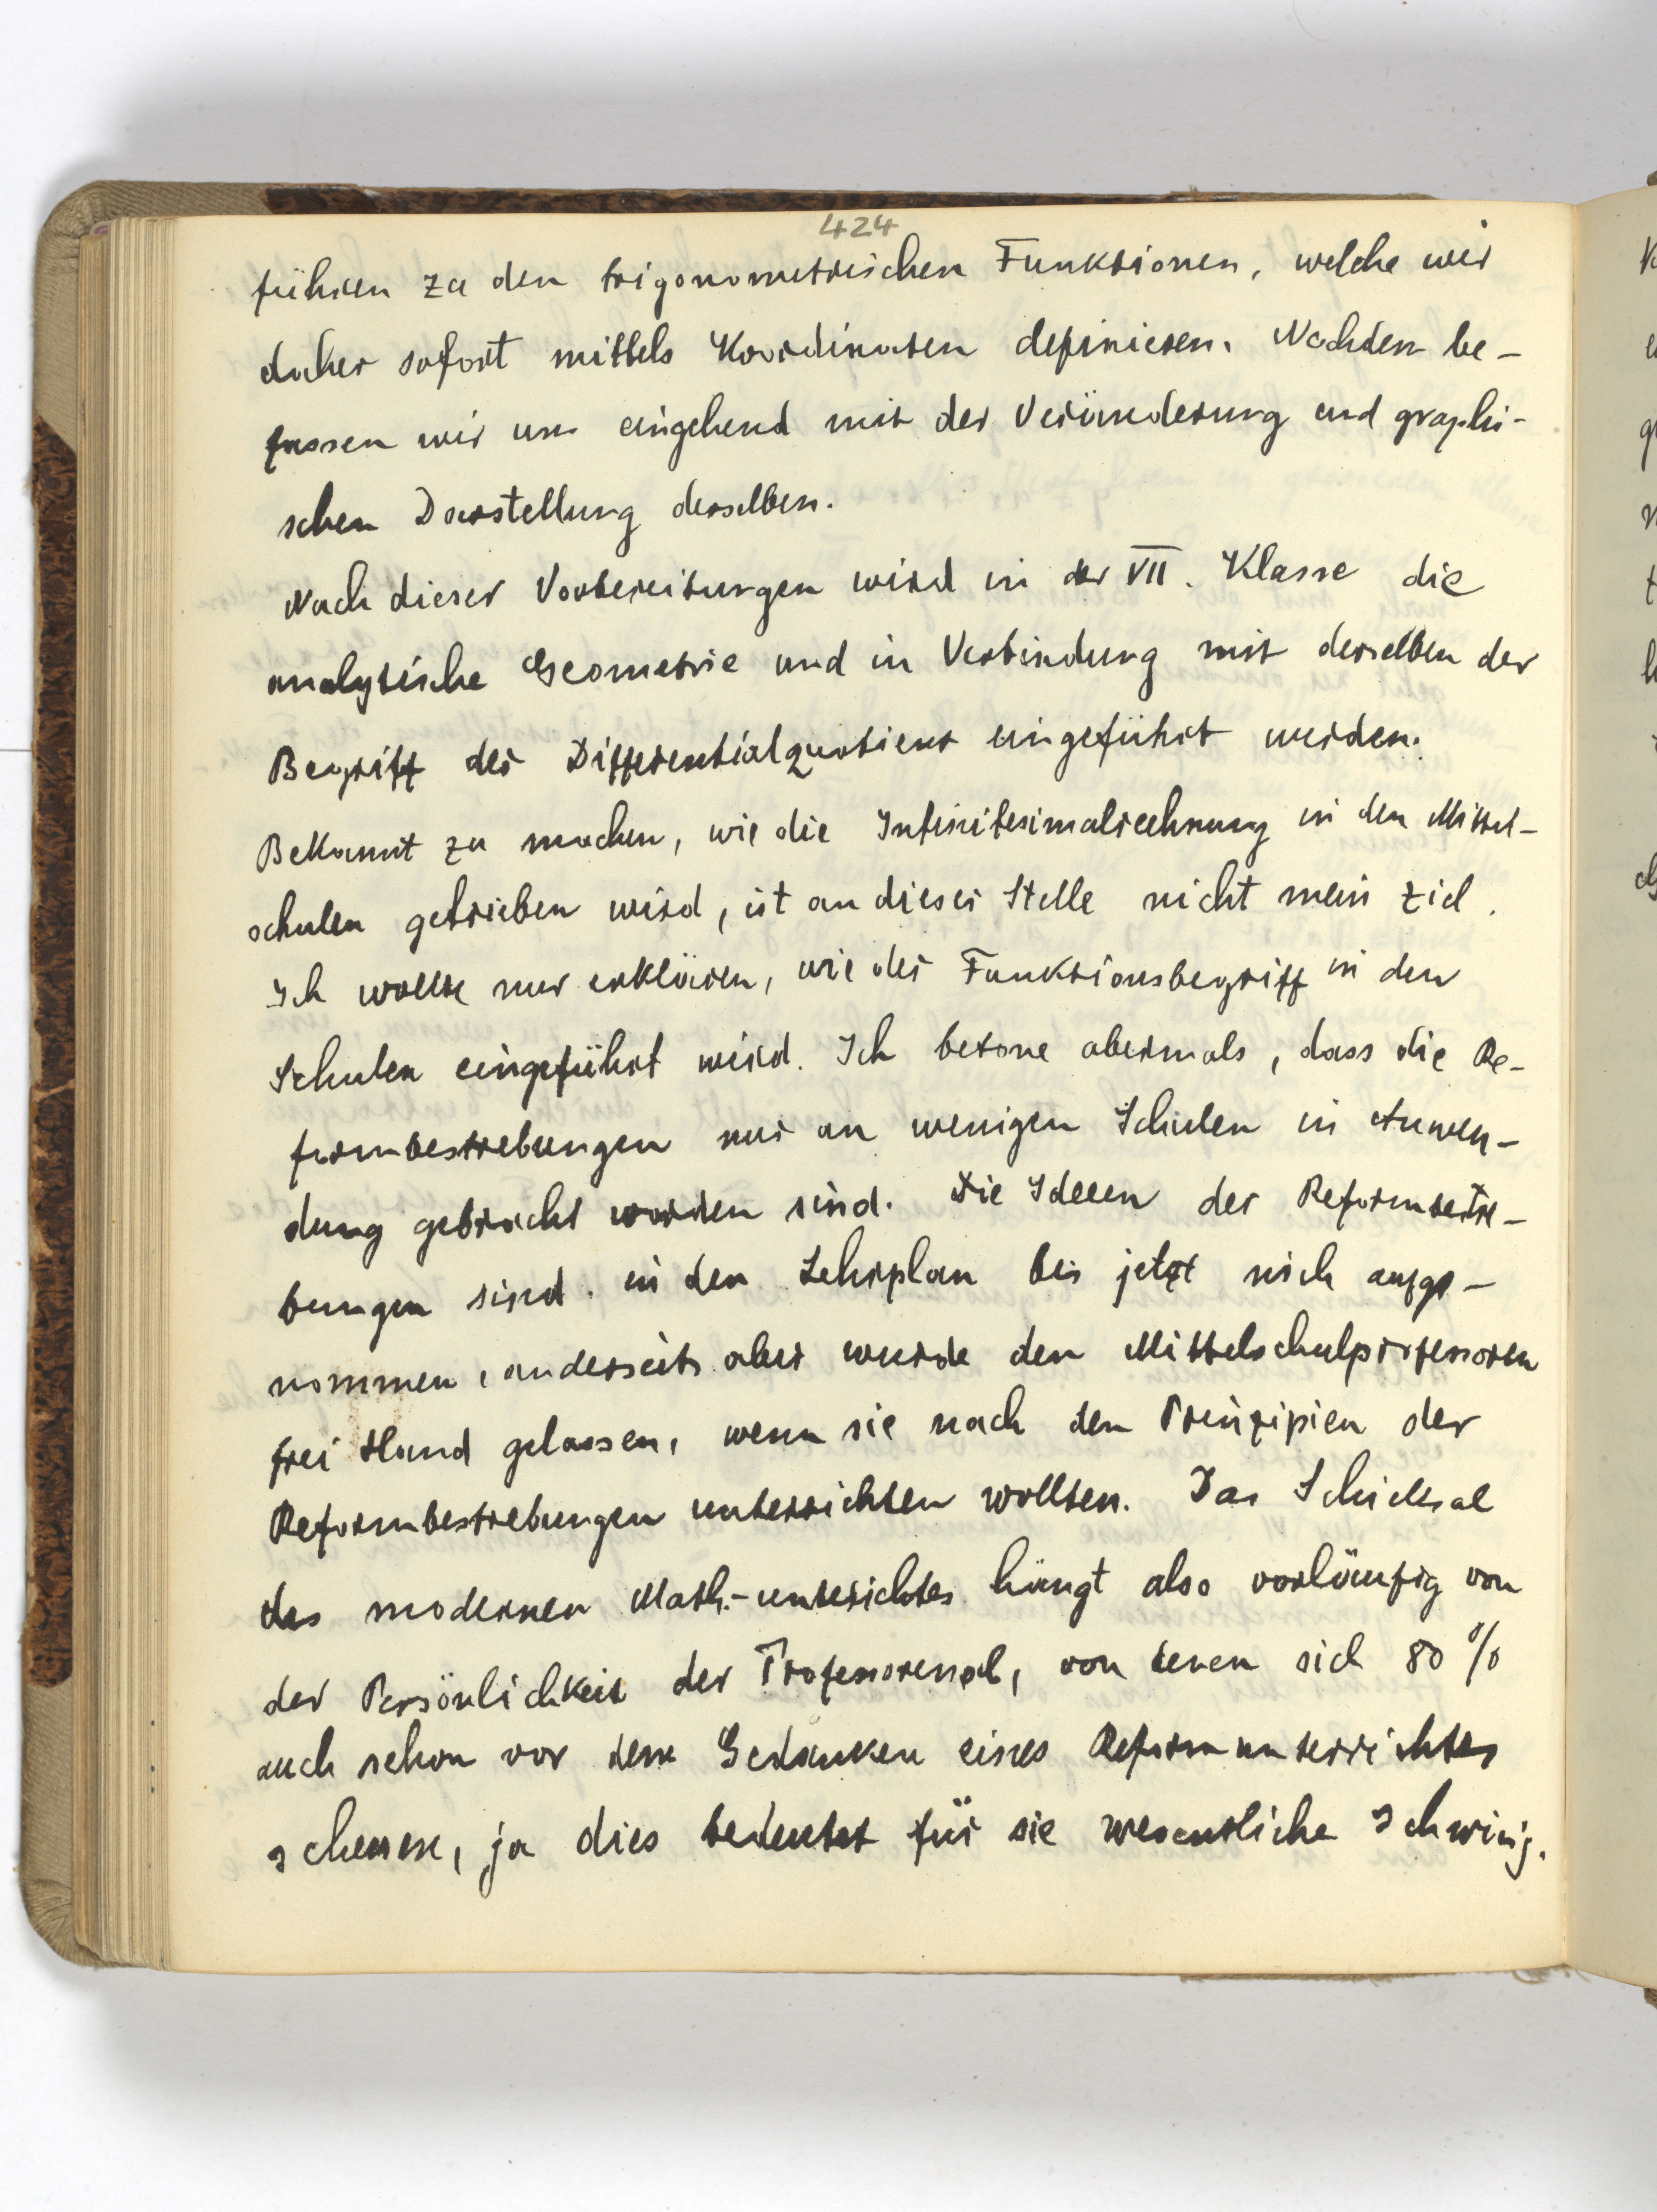 424
führen zu den trigonometrischen Funktionen, welche wir
daher sofort mittels Koordinaten definieren. Nachdem be-
fassen wir uns eingehend mit der Veränderung und graphi-
schen Darstellung derselben.
Nach dieser Vorbereitungen wird in der VII. Klasse die
analytische Geometrie und in Verbindung mit derselben der
Begriff der Differentialquotient eingeführt werden.
Bekannt zu machen, wie die Infinitesimalrechnung in den Mittel-
schulen getrieben wird, ist an dieser Stelle nicht mein Ziel.
Ich wollte nur erklären, wie der Funktionsbegriff in den
Schulen eingeführt wird. Ich betone abermals, dass die Re-
formbestrebungen nur an wenigen Schulen in Anwen-
dung gebracht worden sind. Die Ideeen der Reformbestre-
bungen sind in den Lehrplan bis jetzt nich aufge-
nommen, anderseits aber wurde den Mittelschulprofessoren
frei Hand gelassen, wenn sie nach den Prinzipien der
Reformbestrebungen unterrichten wollten. Das Schicksal
des modernen Math.-unterichtes hängt also vorläufig von
der Persönlichkeit der Professoren ab, von denen sich 80 %
auch schon vor dem Gedanken eines Reformunterrichtes
scheuen, ja dies bedeutet für sie wesentliche Schwirig.